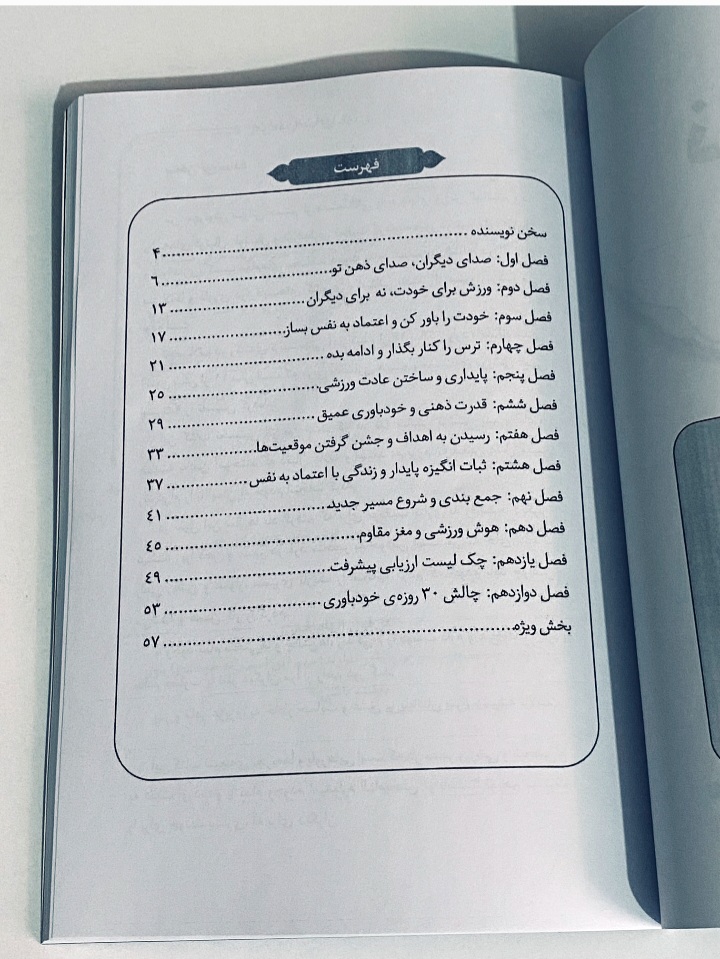 فهرست
سخن نویسنده ................................................................ ۴
فصل اول: صدای دیگران، صدای ذهن تو .................................. ۶
فصل دوم: ورزش برای خودت، نه برای دیگران ........................ ۱۳
فصل سوم: خودت را باور کن و اعتماد به نفس بساز ................ ۱۷
فصل چهارم: ترس را کنار بگذار و ادامه بده .......................... ۲۱
فصل پنجم: پایداری و ساختن عادت ورزشی .......................... ۲۵
فصل ششم: قدرت ذهنی و خودباوری عمیق .......................... ۲۹
فصل هفتم: رسیدن به اهداف و جشن گرفتن موقعیت‌ها ............ ۳۳
فصل هشتم: ثبات انگیزه پایدار و زندگی با اعتماد به نفس ........ ۳۷
فصل نهم: جمع بندی و شروع مسیر جدید ............................ ٤۱
فصل دهم: هوش ورزشی و مغز مقاوم .................................. ٤۵
فصل یازدهم: چک لیست ارزیابی پیشرفت ............................ ٤۹
فصل دوازدهم: چالش ۳۰ روزه‌ی خودباوری .......................... ۵۳
بخش ویژه .................................................................... ۵۷